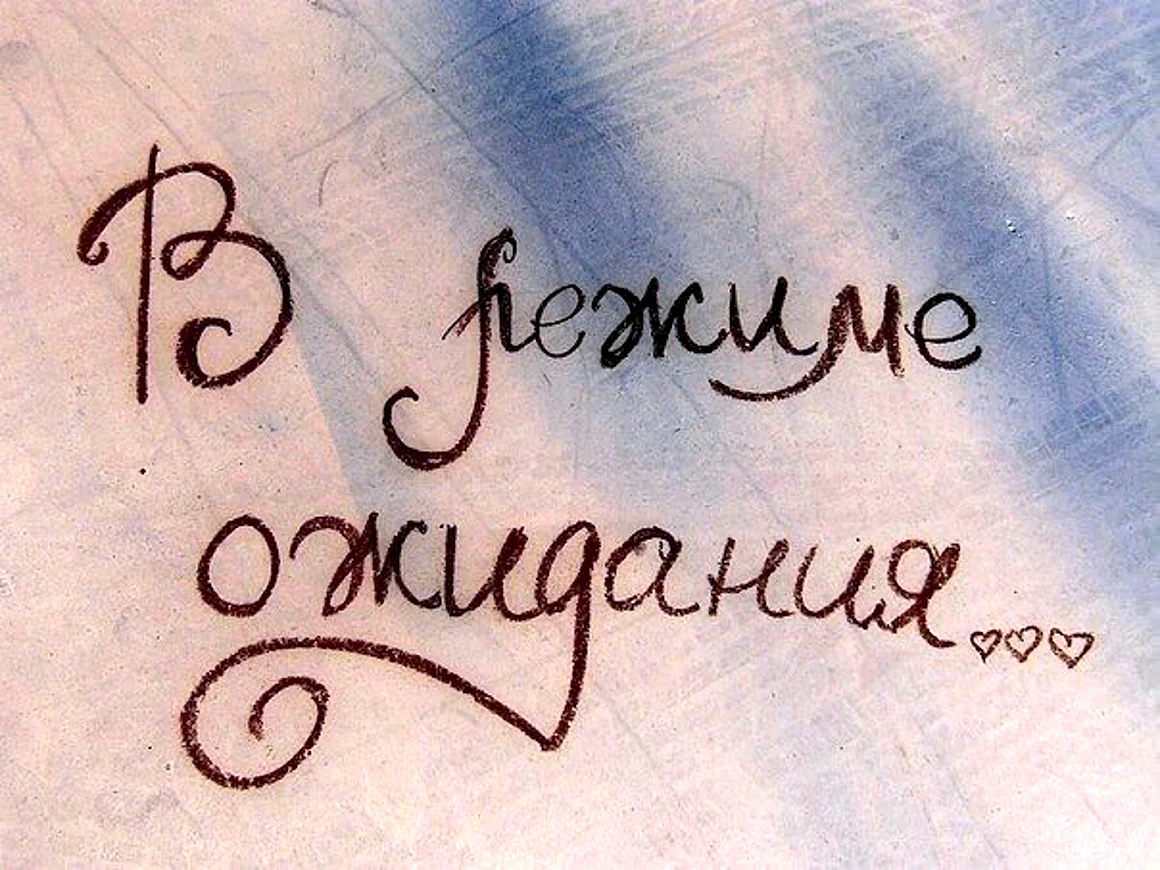 В режиме
ожидания...